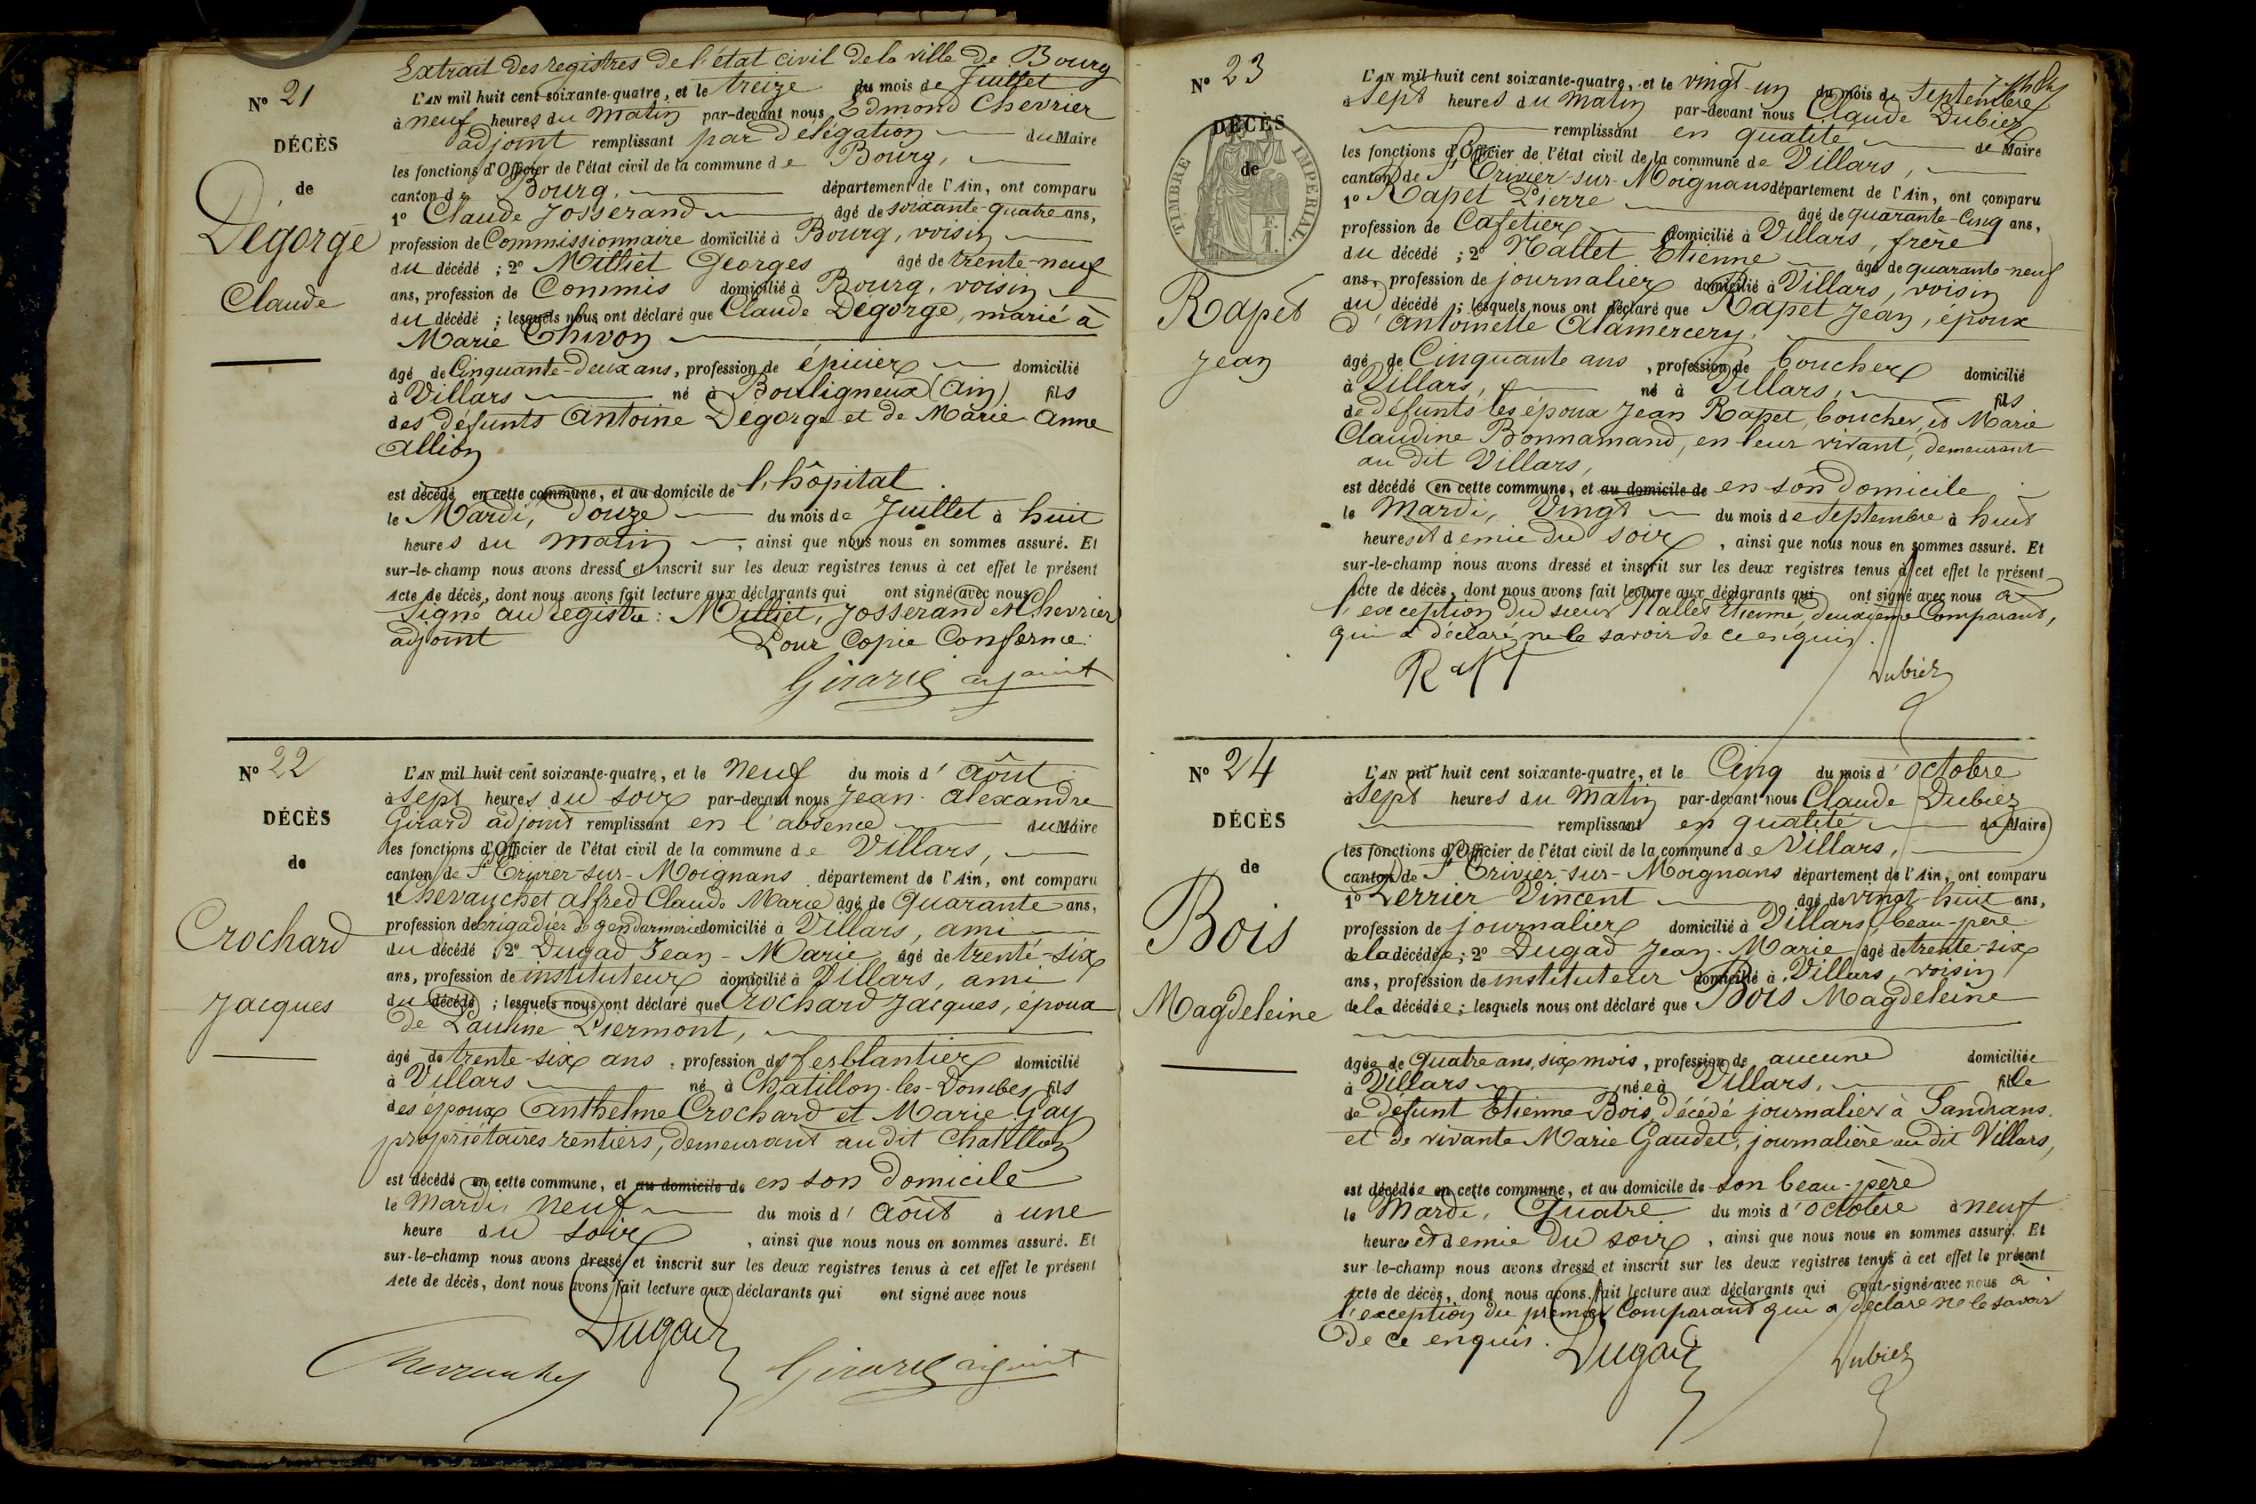 Extrait des registres de l'état civil de la ville de Bourg
N° 21
DÉCÈS
de
Dégorge
Claude
L'AN mil huit cent soixante-quatre, et le treize du mois de Juillet
à neuf heures du matin par-devant nous Edmond Chevrier
adjoint remplissant par délégation du Maire
les fonctions d'Officier de l'état civil de la commune de Bourg,
canton de Bourg, département de l'Ain, ont comparu
1° Claude Josserand âgé de soixante-quatre ans,
profession de Commissionnaire domicilié à Bourg, voisin
du décédé ; 2° Milliet Georges âgé de trente-neuf
ans, profession de Commis domicilié à Bourg, voisin
du décédé ; lesquels nous ont déclaré que Claude Dégorge, marié à
Marie Thivon
âgé de Cinquante-deux ans, profession de épicier domicilié
à Villars né à Bouligneux (Ain) fils
des défunts Antoine Dégorge et de Marie Anne
Allion
est décédé en cette commune, et au domicile de l'hôpital.
le Mardi, douze du mois de Juillet à huit
heures du matin, ainsi que nous nous en sommes assuré. Et
sur-le-champ nous avons dressé et inscrit sur les deux registres tenus à cet effet le présent
Acte de décès, dont nous avons fait lecture aux déclarants qui ont signé avec nous
Signé au registre : Milliet, Josserand et Chevrier
adjoint Pour Copie Conforme :
Girard adjoint
N° 22
DÉCÈS
de
Crochard
Jacques
L'AN mil huit cent soixante-quatre, et le neuf du mois d'Août
à sept heures du soir par-devant nous Jean-Alexandre
Girard adjoint remplissant en l'absence du Maire
les fonctions d'Officier de l'état civil de la commune de Villars,
canton de St Trivier-sur-Moignans département de l'Ain, ont comparu
1° Chevauchet Alfred Claude Marie âgé de Quarante ans,
profession de brigadier de gendarmerie domicilié à Villars, ami
du décédé 2° Dugad Jean-Marie âgé de trente-six
ans, profession de instituteur domicilié à Villars, ami
du décédé ; lesquels nous ont déclaré que Crochard Jacques, époux
de Pauline Piermont,
âgé de trente-six ans, profession de ferblantier domicilié
à Villars né à Chatillon-les-Dombes fils
des époux Anthelme Crochard et Marie Gay
propriétaires rentiers, demeurant au dit Chatillon
est décédé en cette commune, et au domicile de en son domicile
le Mardi neuf du mois d'Août à une
heure du soir, ainsi que nous nous en sommes assuré. Et
sur-le-champ nous avons dressé et inscrit sur les deux registres tenus à cet effet le présent
Acte de décès, dont nous avons fait lecture aux déclarants qui ont signé avec nous
Dugad
Girard adjoint
N° 23
DÉCÈS
de
TIMBRE IMPÉRIAL
Rapet
Jean
L'AN mil huit cent soixante-quatre, et le vingt-un du mois de Septembre
à sept heures du matin par-devant nous Claude Dubiez
remplissant en qualité de Maire
les fonctions d'Officier de l'état civil de la commune de Villars,
canton de St Trivier-sur-Moignans département de l'Ain, ont comparu
1° Rapet Pierre âgé de quarante-cinq ans,
profession de Cafetier domicilié à Villars, frère
du décédé ; 2° Nallet Etienne âgé de quarante-neuf
ans, profession de journalier domicilié à Villars, voisin
du décédé ; lesquels nous ont déclaré que Rapet Jean, époux
d'Antoinette Alamercery,
âgé de Cinquante ans, profession de boucher domicilié
à Villars, né à Villars, fils
de défunts les époux Jean Rapet, boucher, et Marie
Claudine Bonnamand, en leur vivant, demeurant
au dit Villars,
est décédé en cette commune, et au domicile de en son domicile
le Mardi, Vingt du mois de septembre à huit
heures et demie du soir, ainsi que nous nous en sommes assuré. Et
sur-le-champ nous avons dressé et inscrit sur les deux registres tenus à cet effet le présent
Acte de décès, dont nous avons fait lecture aux déclarants qui ont signé avec nous à
l'exception du sieur Nallet Etienne, deuxième Comparant,
qui a déclaré ne le savoir de ce enquis.
Dubiez
N° 24
DÉCÈS
de
Bois
Magdeleine
L'AN mil huit cent soixante-quatre, et le Cinq du mois d'Octobre
à sept heures du matin par-devant nous Claude Dubiez
remplissant en qualité de Maire
les fonctions d'Officier de l'état civil de la commune de Villars,
canton de St Trivier-sur-Moignans département de l'Ain, ont comparu
1° Perrier Vincent âgé de vingt-huit ans,
profession de journalier domicilié à Villars, beau-père
de la décédée ; 2° Dugad Jean-Marie âgé de trente-six
ans, profession de instituteur domicilié à Villars, voisin
de la décédée ; lesquels nous ont déclaré que Bois Magdeleine
âgée de quatre ans, six mois, profession de aucune domiciliée
à Villars née à Villars, fille
de défunt Etienne Bois, décédé journalier à Sandrans
et de vivante Marie Gaudet, journalière au dit Villars,
est décédée en cette commune, et au domicile de son beau-père
le Mardi, Quatre du mois d'octobre à neuf
heures et demie du soir, ainsi que nous nous en sommes assuré. Et
sur-le-champ nous avons dressé et inscrit sur les deux registres tenus à cet effet le présent
Acte de décès, dont nous avons fait lecture aux déclarants qui ont signé avec nous à
l'exception du premier Comparant qui a déclaré ne le savoir
de ce enquis.
Dugad
Dubiez